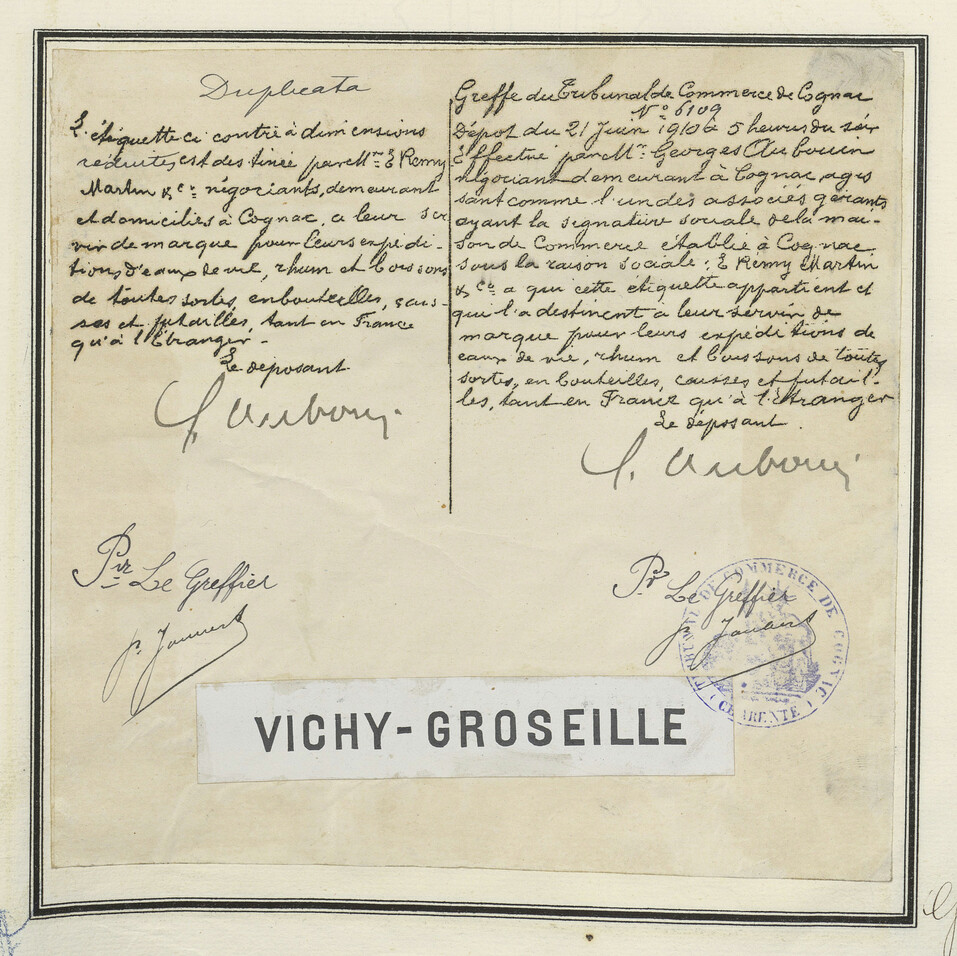 Duplicata
L'étiquette ci contre à dimensions
réduites, est destinée par Mrs E Remy
Martin & Co négociants, demeurant
et domiciliés à Cognac, a leur ser
vir de marque pour leurs expédi-
tions d'eaux de vie, rhum et boissons
de toutes sortes, en bouteilles, cais-
ses et futailles, tant en France
qu'à l'Étranger -
Le déposant
G. Aubouin
Pr Le Greffier
Greffe du Tribunal de Commerce de Cognac
No 6109
Dépot du 21 Juin 1910 à 5 heures du soir
Effectué par Mr Georges Aubouin
négociant demeurant à Cognac, agis
sant comme l'un des associés gérants
ayant la signature sociale de la mai-
son de Commerce établie à Cognac
sous la raison sociale: E Rémy Martin
& Co a qui cette étiquette appartient et
qui l'a destinent a leur servir de
marque pour leurs expéditions de
eaux de vie, rhum et boissons de toutes
sortes, en bouteilles, caisses et futail-
les, tant en France qu'à l'étranger
Le déposant.
G. Aubouin
Pr Le Greffier
p. Joubert
TRIBUNAL DE COMMERCE DE COGNAC
(CHARENTE)
VICHY-GROSEILLE